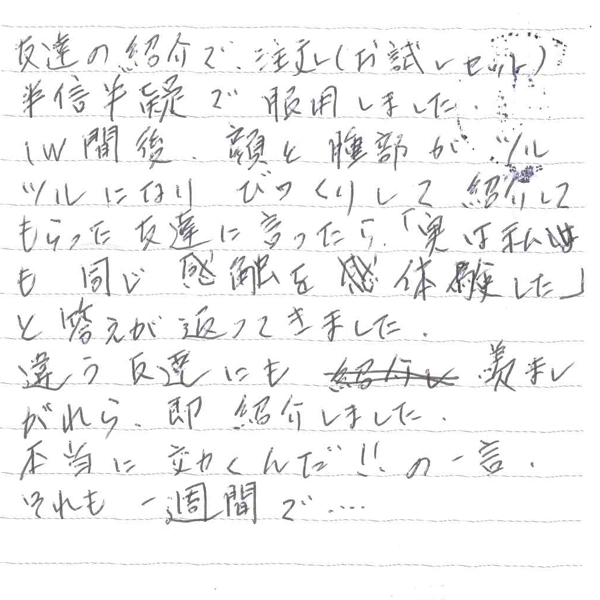 友達の紹介で、注文し(お試しセット)
半信半疑で服用しました.
1W間後、顔と腫部がツル
ツルになり びっくりして 紹介して
もらった友達に言ったら、「実は私は
も 同じ感触を感 体験した」
と答えが返ってきました.
違う友達にも 紹介し 羨まし
がれら、即 紹介しました.
本当に効くんだ!! の一言.
それも 一週間で....